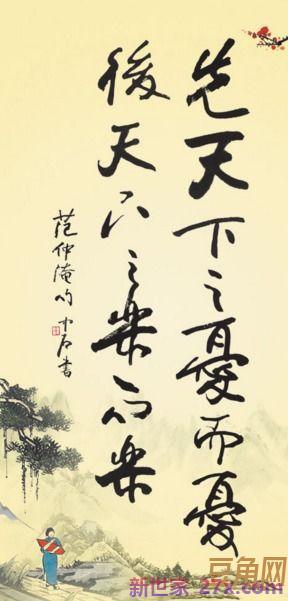 先天下之憂而憂
後天下之樂而樂
范仲淹句 中石書
豆角网
新世家 27x.com